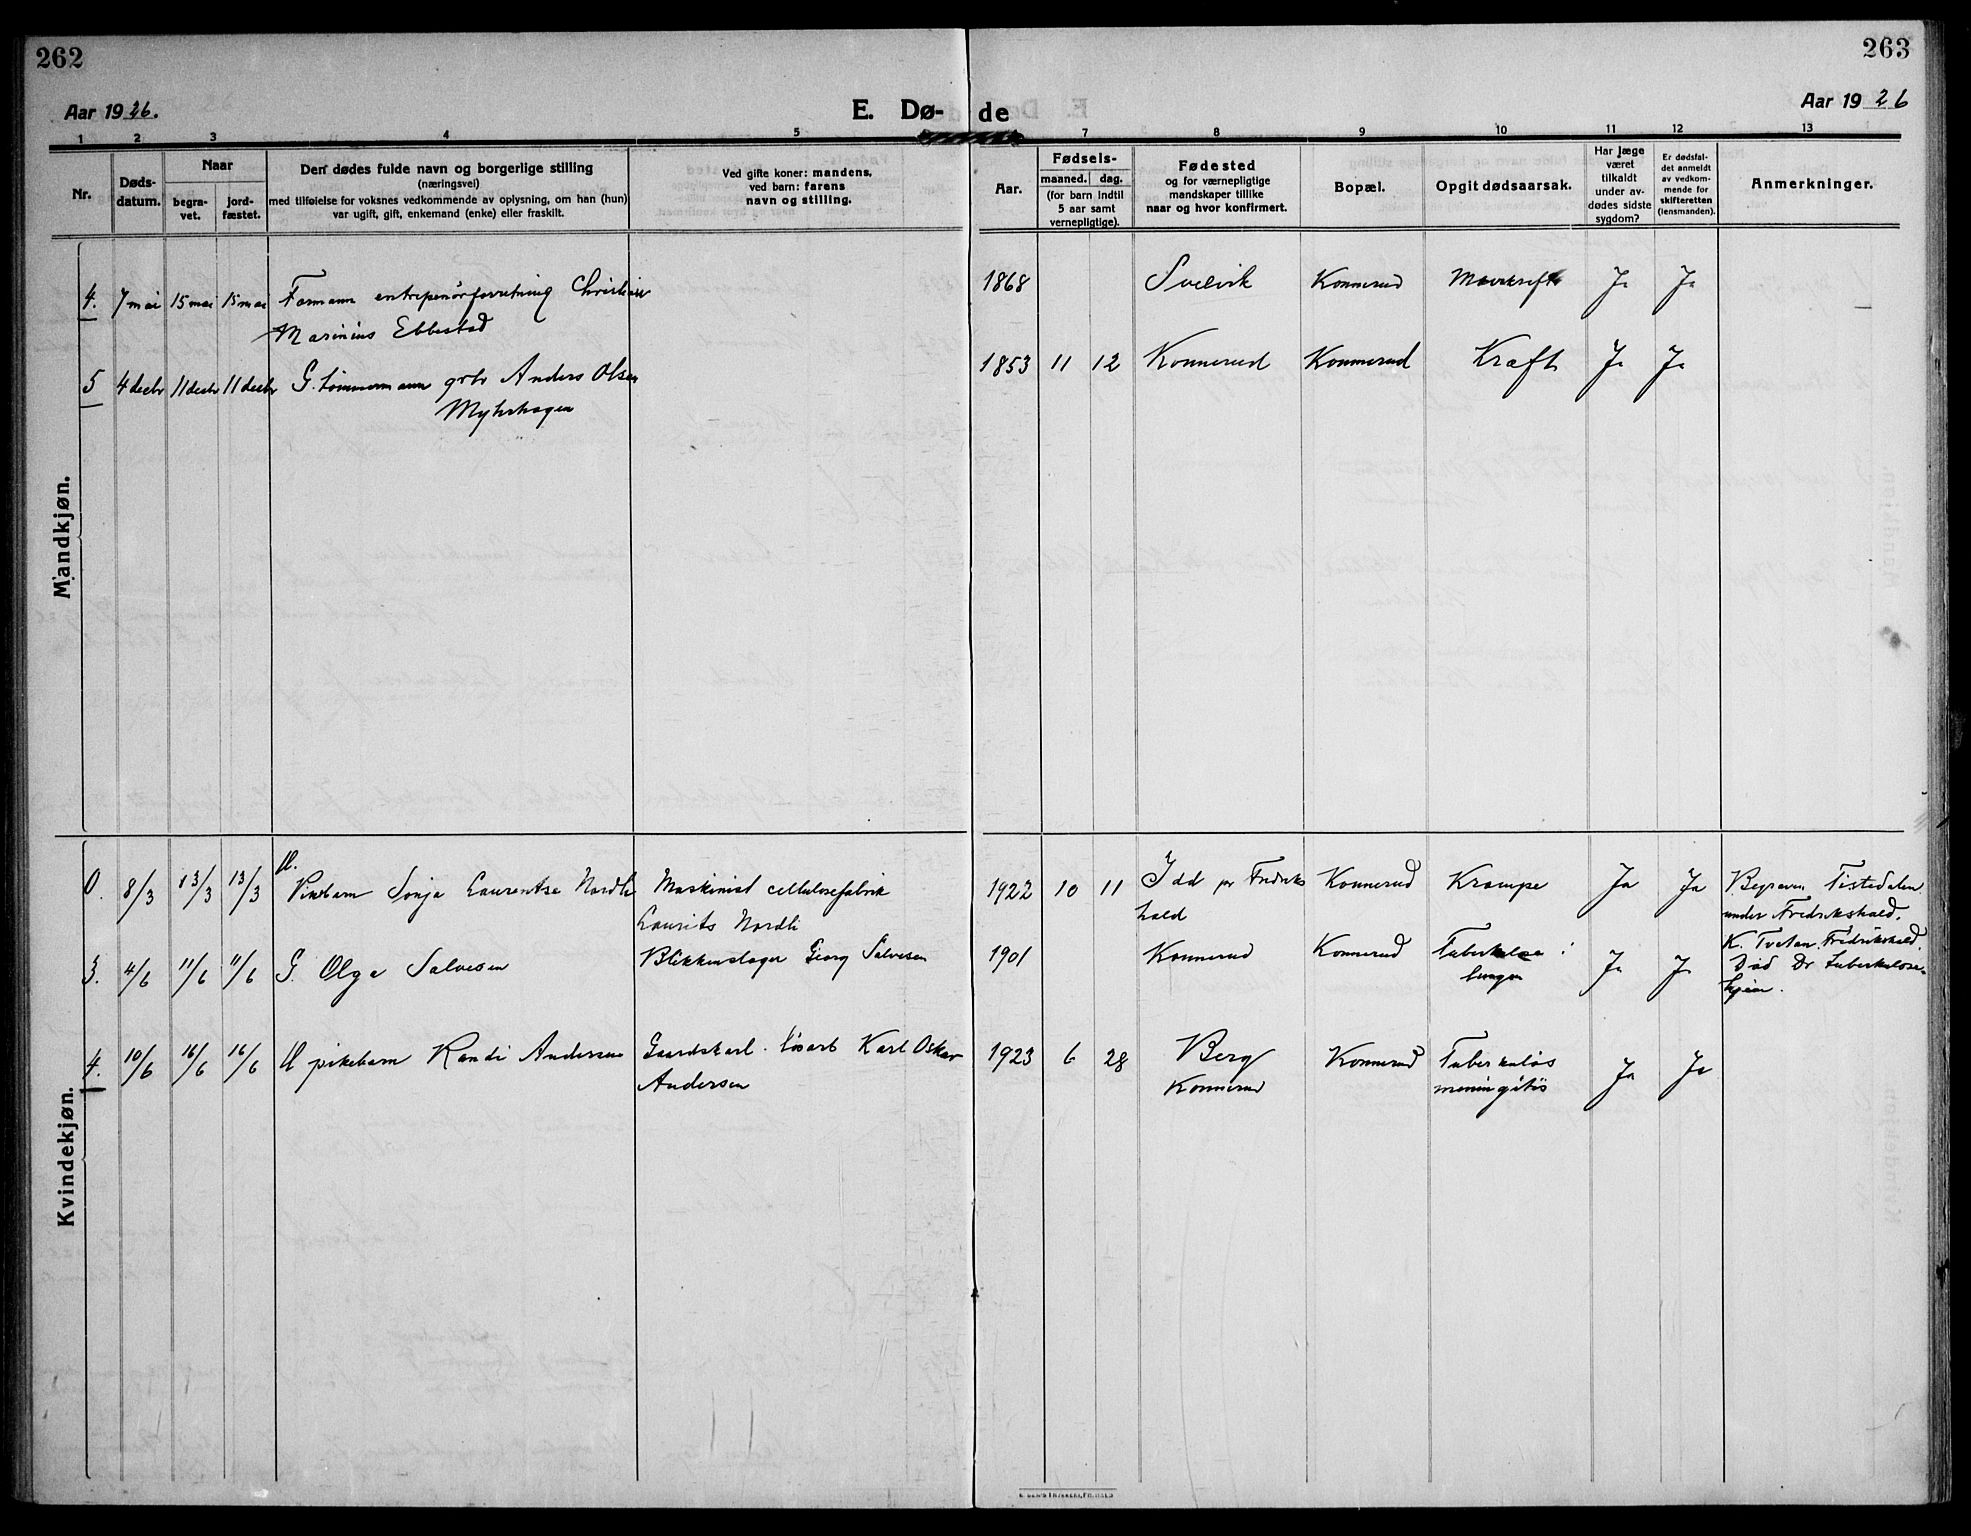 262
263
Aar 1926.
E. Dø-
de
Aar 1926
1 2 3 4 5 7 8 9 10 11 12 13
Nr.
Døds-
datum.
Naar
begra-
vet.
jord-
fæstet.
Den dødes fulde navn og borgerlige stilling
(næringsvei)
med tilføielse for voksnes vedkommende av oplysning, om han (hun)
var ugift, gift, enkemand (enke) eller fraskilt.
Ved gifte koner: mandens,
ved barn: farens
navn og stilling.
Aar.
Fødsels-
maaned. dag.
(for barn indtil
5 aar samt
vernepligtige).
Fødested
og for værnepligtige
mandskaper tillike
naar og hvor konfirmert.
Bopæl.
Opgit dødsaarsak.
Har læge
været
tilkaldt
under av-
dødes sidste
sygdom?
Er dødsfal-
det anmeldt
av vedkom-
mende for
skifteretten
(lensmanden).
Anmerkninger.
Mandkjøn.
4. 7 mai 15 mai 15 mai Formann entrepenørforretning Christian 1868 Svelvik Konnerud Mavekreft Ja Ja
Marinius Ebbestad
5 4 decbr 11 decbr 11 decbr G. tømmermann grbr Anders Olsen 1853 11 12 Konnerud Konnerud Kræft Ja Ja
Myhrhagen
Kvindekjøn.
U.
0. 8/3 13/3 13/3 Pikebarn Sonja Laurentse Nordli Maskinist cellulosefabrik 1922 10 11 Idd pr Fredriks Konnerud Krampe Ja Ja Begraven Tistedalen
Laurits Nordli hald under Fredrikshald.
3. 4/6 11/6 11/6 G. Olga Salvesen Blikkenslager Georg Salvesen 1901 Konnerud Konnerud Tuberkulose i Ja Ja K. Tvetan. Fredrikshald.
lungen Død Dr. tuberkulose-
hjem.
4. 10/6 16/6 16/6 U pikebarn Randi Andersen Gaardskarl. løsarb Karl Oskar 1923 6 28 Berg Konnerud Tuberkuløs Ja Ja
Andersen Konnerud meningitis